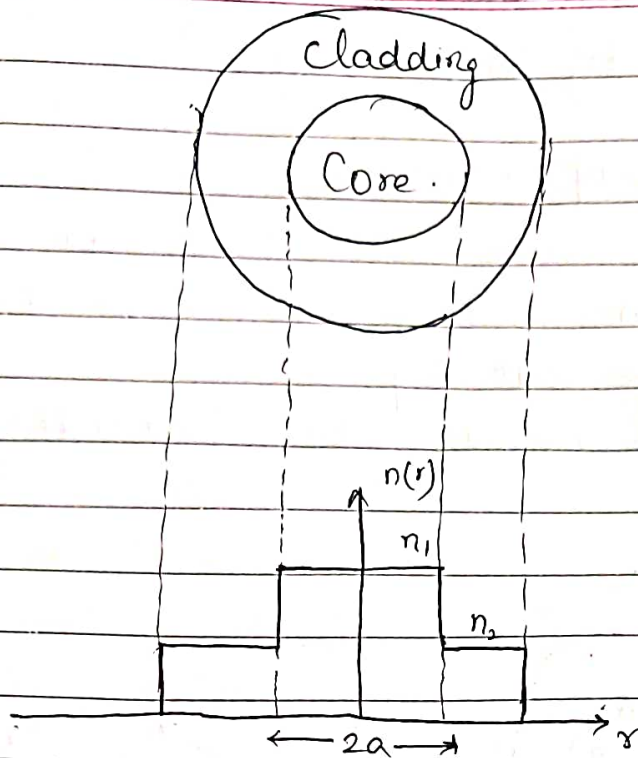 Cladding
Core.
n(r)
n₁
n₂
2a
r